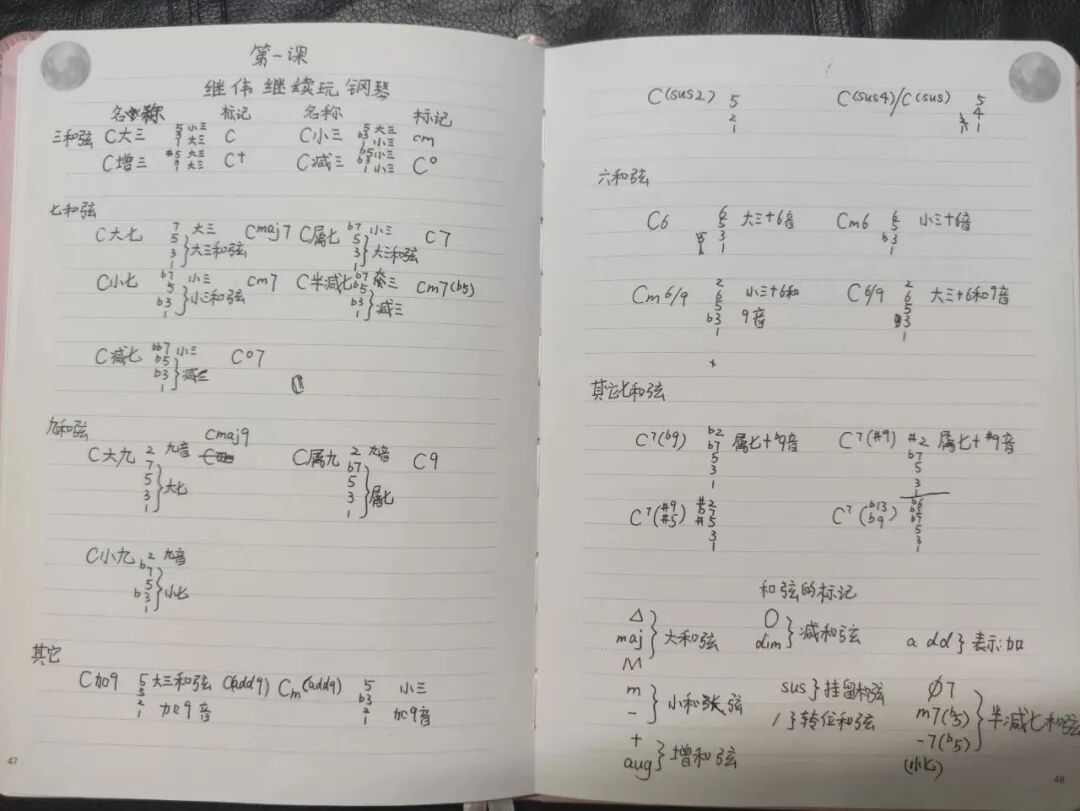 第一课
继伟 继续玩 钢琴
名称 标记 名称 标记
三和弦 C大三 5 3 1 小三 大三 C C小三 5 b3 1 大三 小三 cm
C增三 #5 3 1 大三 大三 C+ C减三 b5 b3 1 小三 小三 C°
七和弦
C大七 7 5 3 1 大三 }大三和弦 Cmaj7 C属七 b7 5 3 1 小三 }大三和弦 C7
C小七 b7 5 b3 1 小三 }小三和弦 cm7 C半减七 b7 b5 b3 1 大三 }减三 Cm7(b5)
C减七 bb7 b5 b3 1 小三 }减三 C°7
九和弦
C大九 2 7 5 3 1 九音 }大七 Cmaj9 C属九 2 b7 5 3 1 九音 }属七 C9
C小九 2 b7 5 b3 1 九音 }小七
其它
C加9 5 3 2 1 大三和弦 加9音 C(add9) Cm(add9) 5 b3 2 1 小三 加9音
47
C(sus2) 5 2 1 C(sus4)/C(sus) 5 4 1
六和弦
C6 6 5 3 1 大三+6音 Cm6 6 5 b3 1 小三+6音
Cm6/9 2 6 5 b3 1 小三+6和9音 C6/9 2 6 5 3 1 大三+6和9音
其它七和弦
C7(b9) b2 b7 5 3 1 属七+b9音 C7(#9) #2 b7 5 3 1 属七+#9音
C7(#9 #5) #2 b7 #5 3 1 C7(b13 b9) b6 b2 b7 5 3 1
和弦的标记
Δ maj M }大和弦 O dim }减和弦 add }表示加
m - }小和弦 sus }挂留和弦 Ø7 m7(b5) -7(b5) }半减七和弦
/ }转位和弦
+ aug }增和弦 (小七)
48